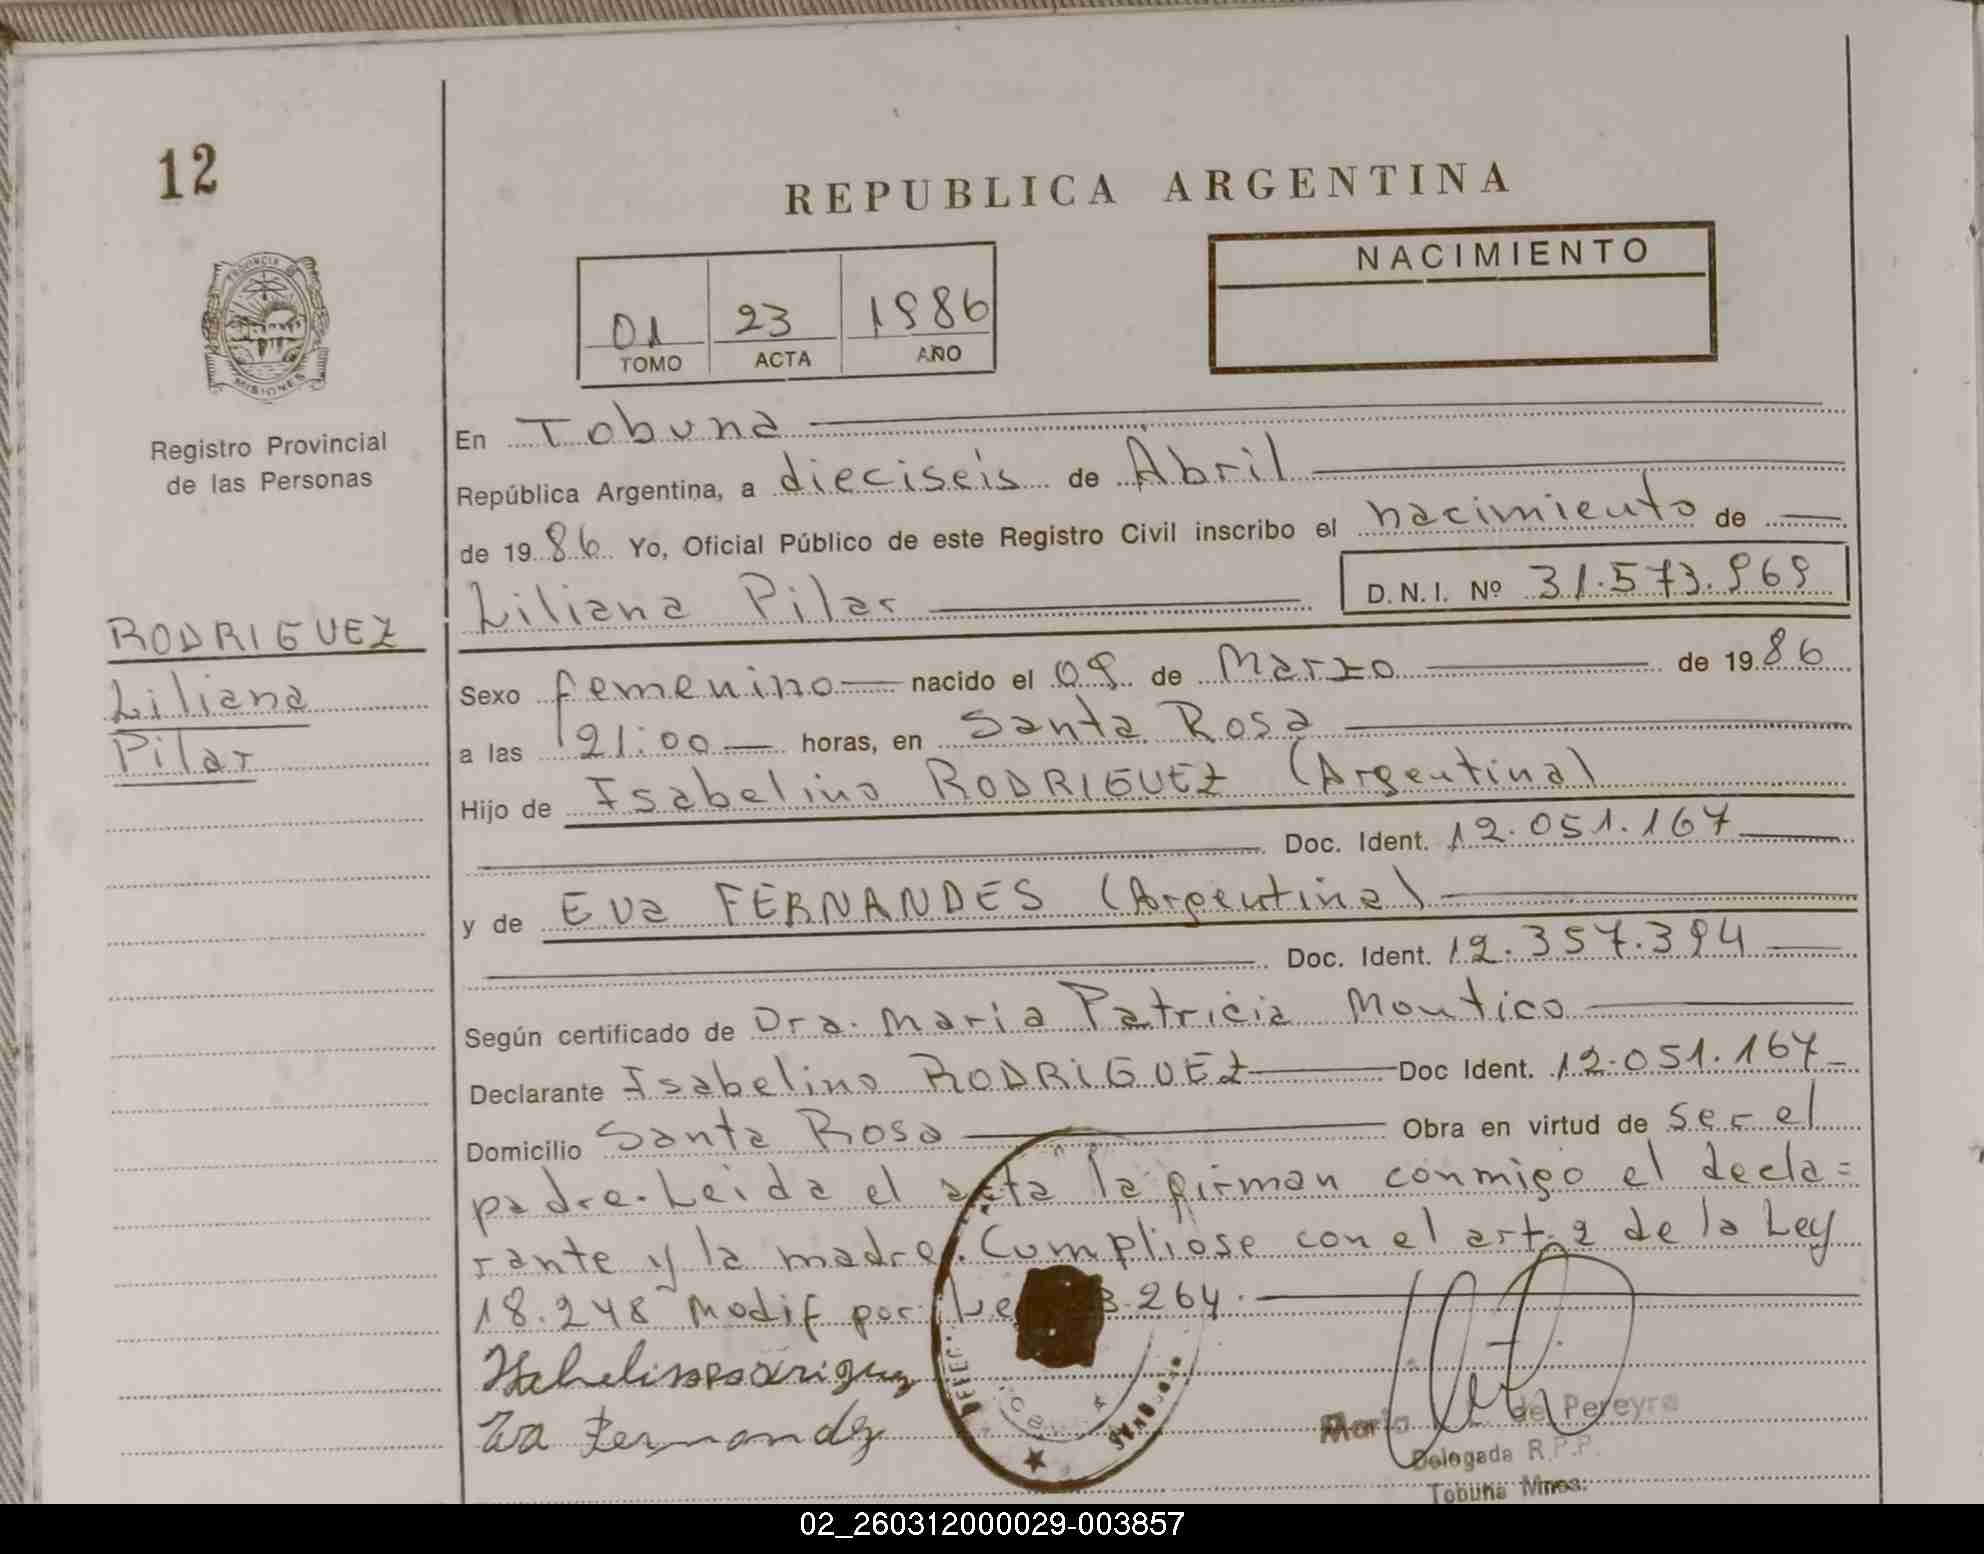 12
REPUBLICA ARGENTINA
PROVINCIA DE
MISIONES
Registro Provincial
de las Personas
RODRIGUEZ
Liliana
Pilar
01 23 1986
TOMO ACTA AÑO
NACIMIENTO
En Tobuna
República Argentina, a dieciseis de Abril
de 1986 Yo, Oficial Público de este Registro Civil inscribo el nacimiento de
Liliana Pilar D.N.I. Nº 31.573.969
Sexo femenino nacido el 09 de Marzo de 1986
a las 21:00 horas, en Santa Rosa
Hijo de Isabelino RODRIGUEZ (Argentina)
Doc. Ident. 12.051.167
y de Eva FERNANDES (Argentina)
Doc. Ident. 12.357.394
Según certificado de Dra. Maria Patricia Moutico
Declarante Isabelino RODRIGUEZ Doc Ident. 12.051.167
Domicilio Santa Rosa Obra en virtud de ser el
padre. Leida el acta la firman conmigo el decla=
rante y la madre. Cumpliose con el art. 2 de la Ley
18.248 Modif por 264.
de Pereyra
Delegada R.P.P.
Tobuna Mnes.
02_260312000029-003857